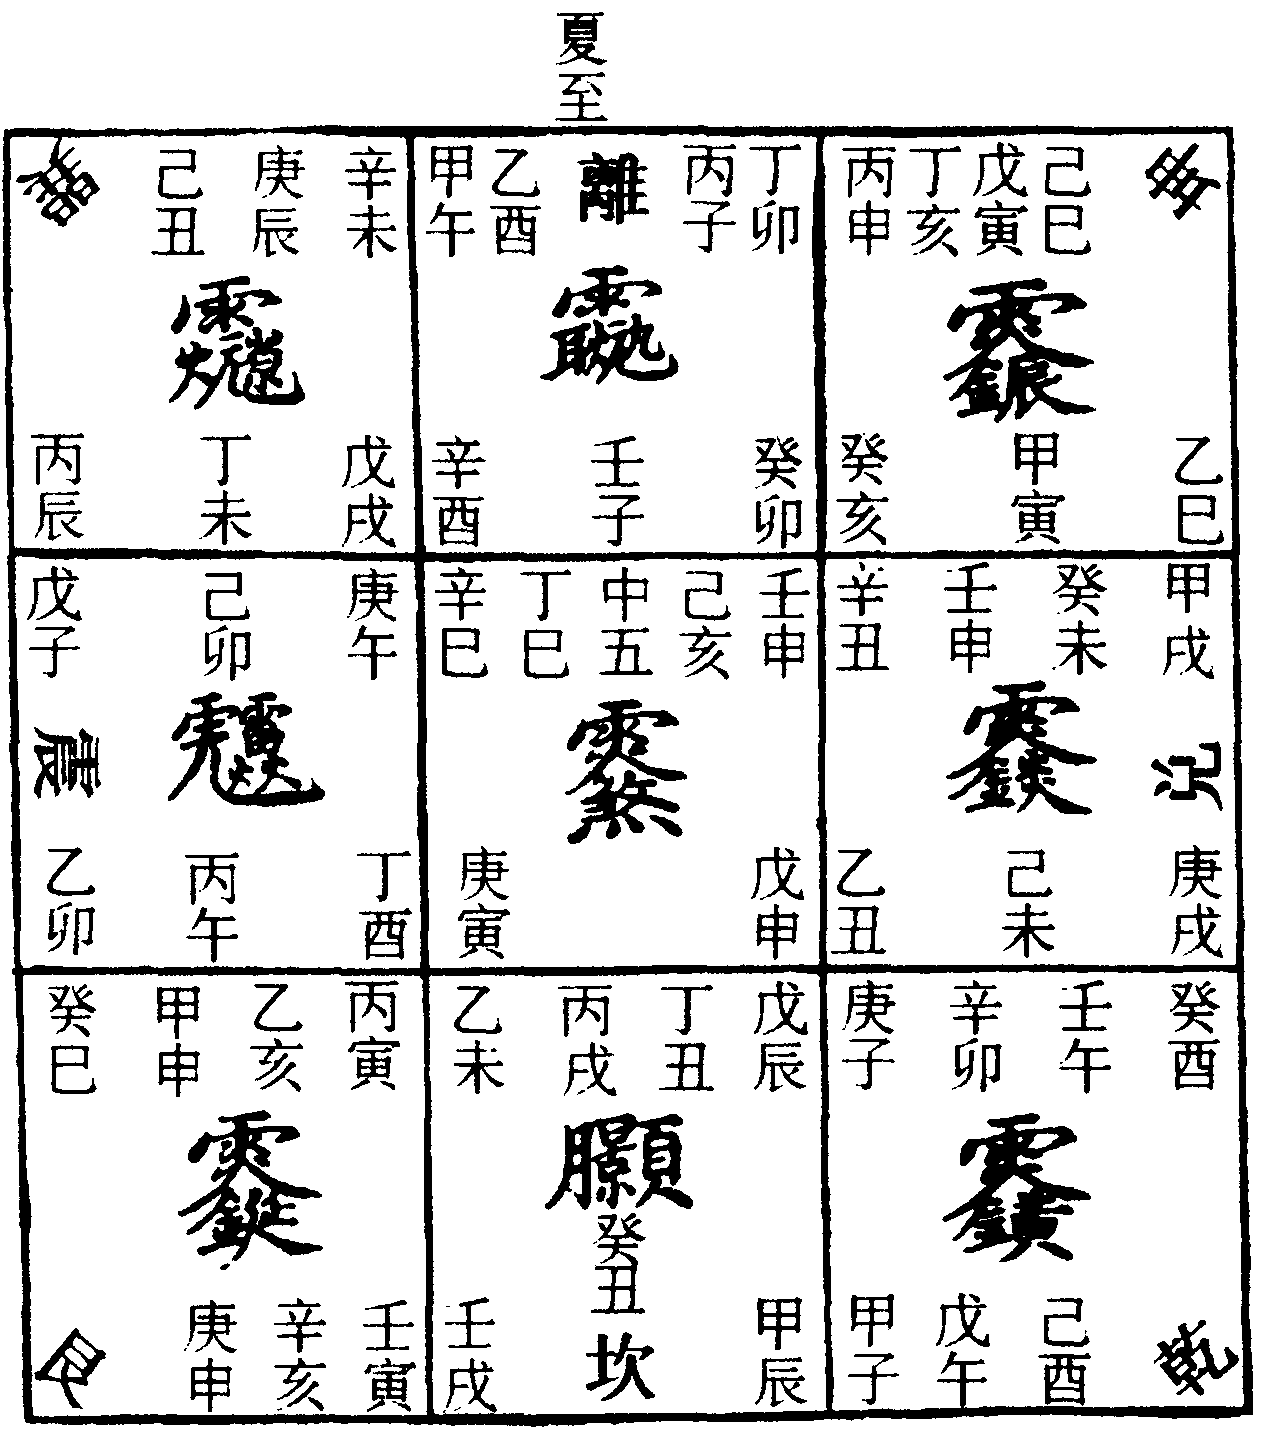 夏至
巽
己丑 庚辰 辛未
丙辰 丁未 戊戌
甲午 乙酉 離 丙子 丁卯
辛酉 壬子 癸卯
丙申 丁亥 戊寅 己巳
癸亥 甲寅 乙巳
戊子 己卯 庚午
震
乙卯 丙午 丁酉
辛巳 丁巳 中五 己亥 壬申
庚寅 戊申
辛丑 壬申 癸未 甲戌
兌
乙丑 己未 庚戌
癸巳 甲申 乙亥 丙寅
艮
庚申 辛亥 壬寅
乙未 丙戌 丁丑 戊辰
癸丑
壬戌 坎 甲辰
庚子 辛卯 壬午 癸酉
甲子 戊午 己酉
乾